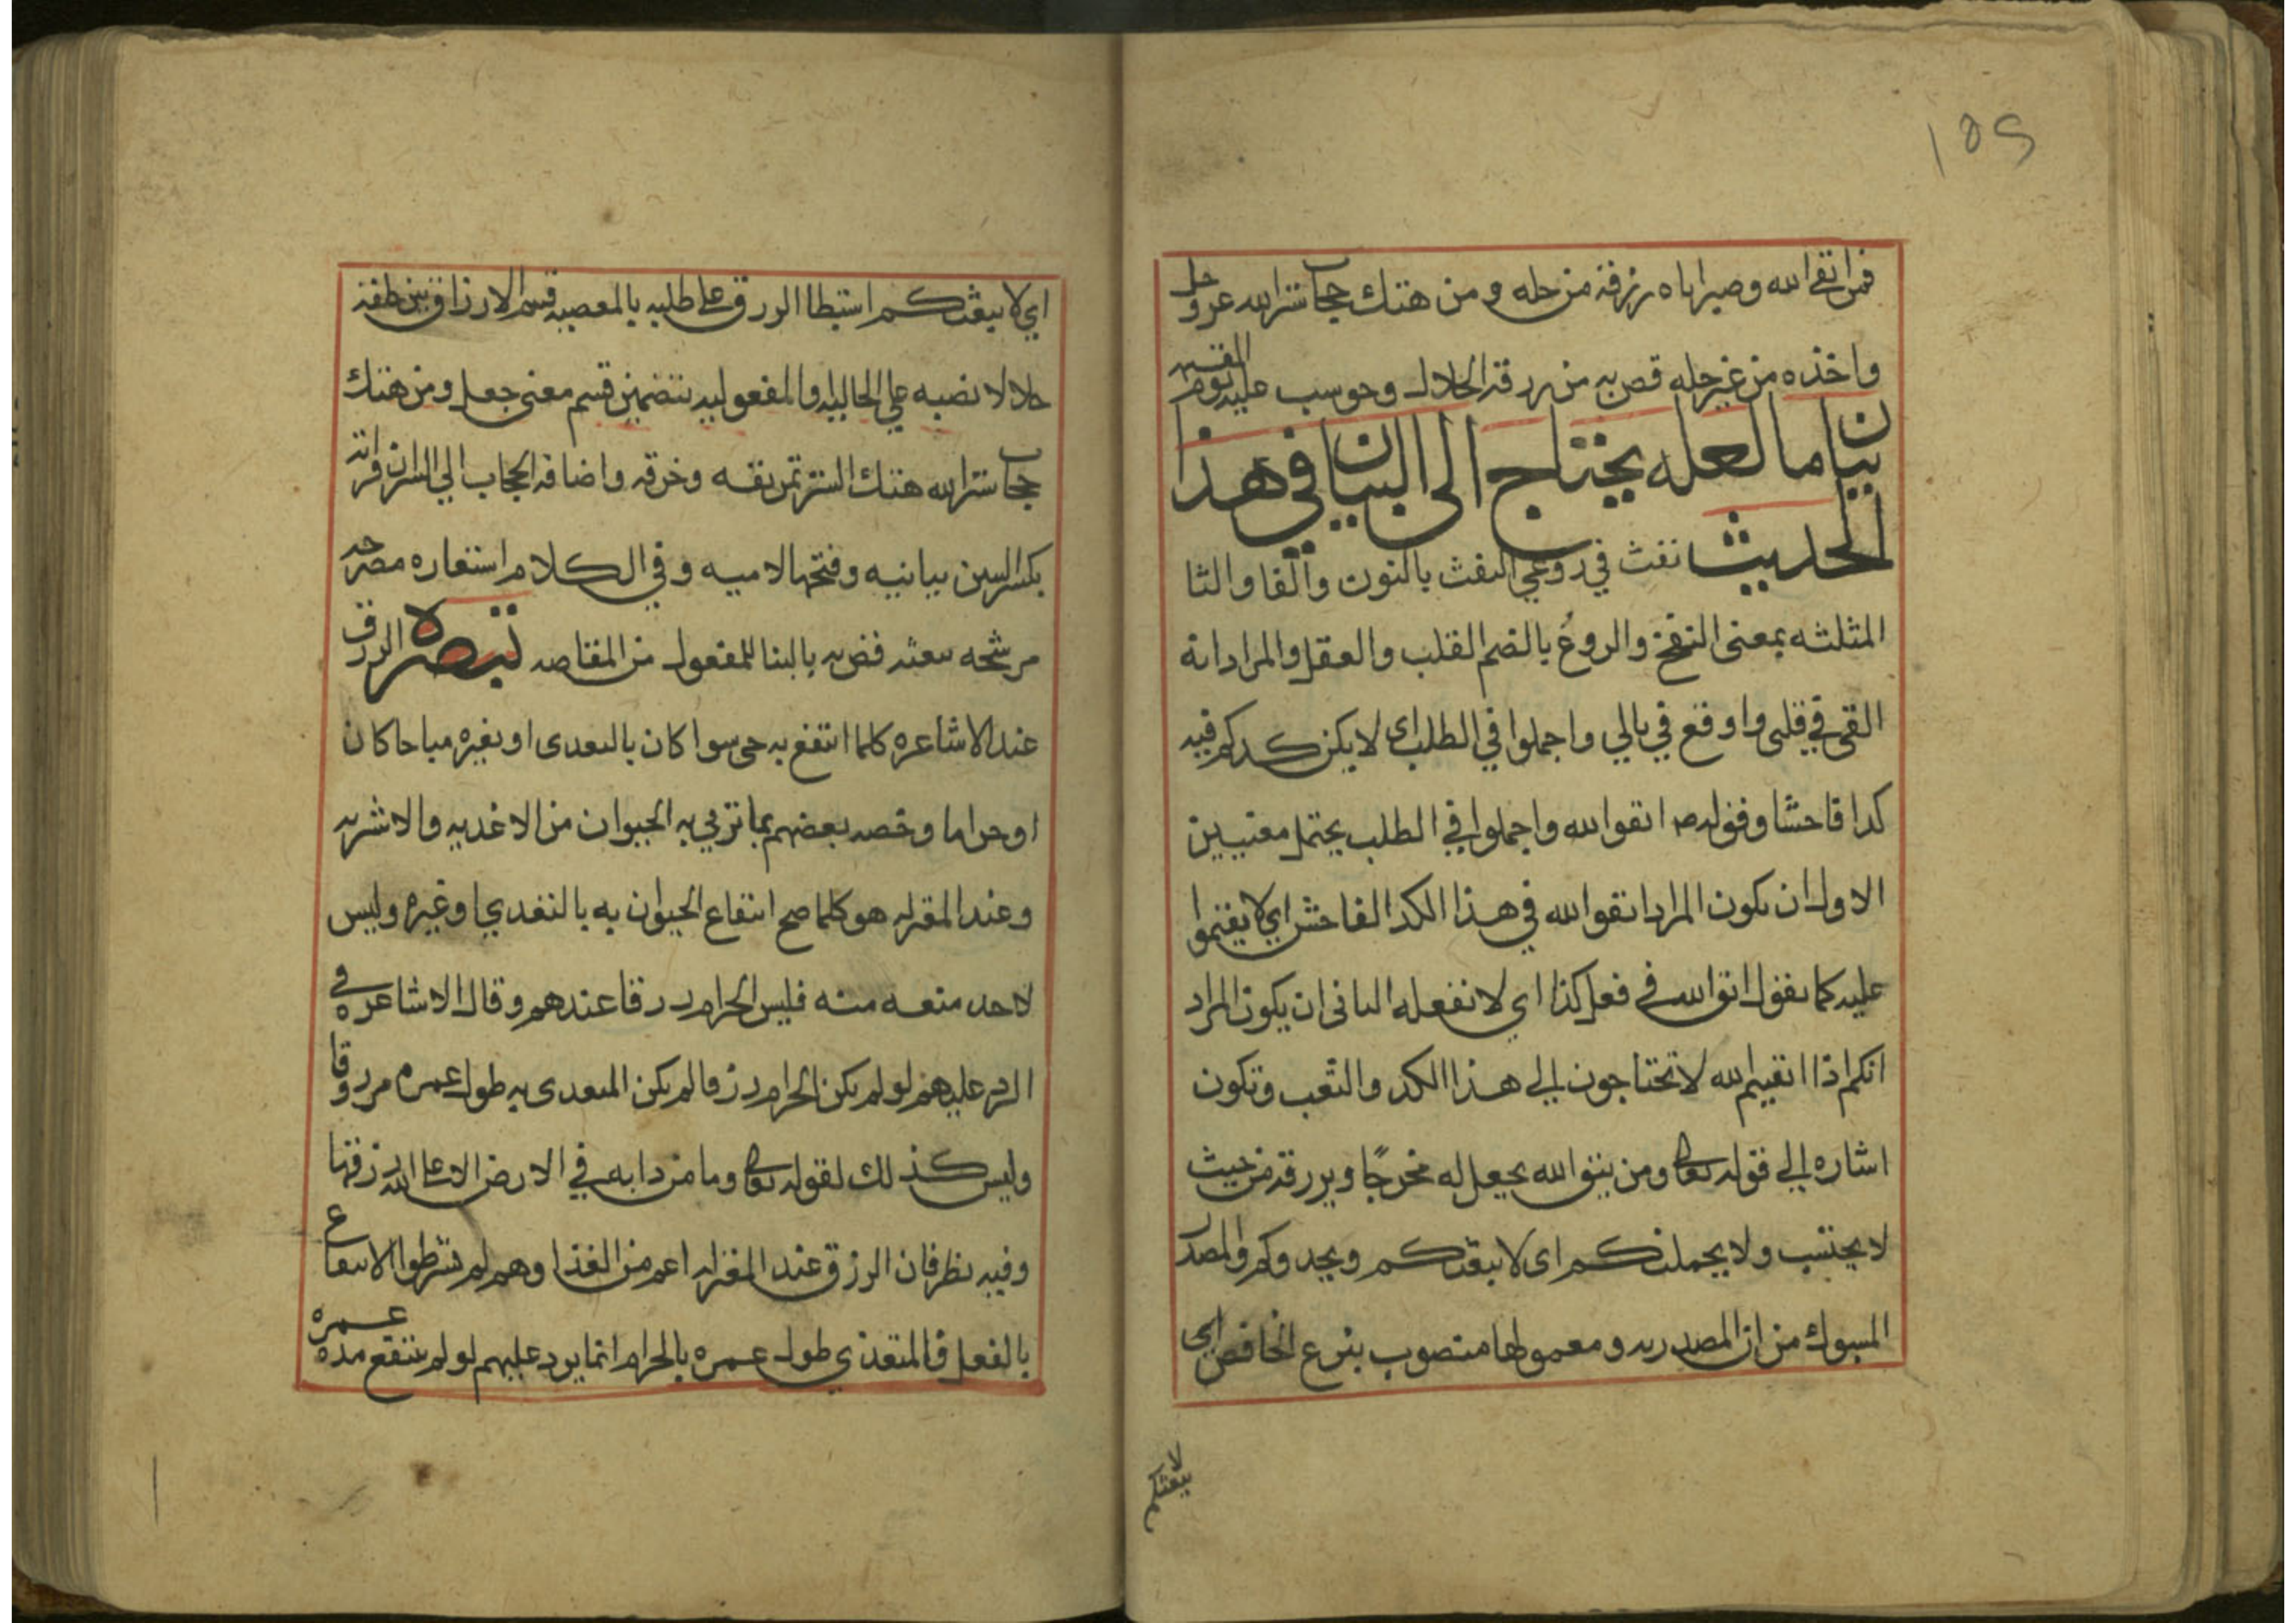 ١٥٢
فمن اتقي الله وصبر اتاه رزقه من حله ومن هتك حجاب ستر الله عز وجل
واخذه من غير حله قص به من رزقه الحلال وحوسب عليه يوم القيمه
بيان ما لعله يحتاج الى البيان في هذا
الحديث نفث في روعي النفث بالنون والفا والثا
المثلثه بمعنى النفخ والروع بالضم القلب والعقل والمراد انه
القى في قلبي واوقع في بالي واجملوا في الطلب اى لا يكن كدكم فيه
كدا فاحشا وقوله ص اتقوا الله واجملوا في الطلب يحتمل معنيين
الاول ان يكون المراد اتقوا الله في هذا الكد الفاحش اي لا تقيموا
عليه كما تقول اتق الله في فعل كذا اي لا تفعله الثاني ان يكون المراد
انكم اذا اتقيتم الله لا تحتاجون الي هذا الكد والتعب وتكون
اشاره الي قوله تعالى ومن يتق الله يجعل له مخرجًا ويرزقه من حيث
لا يحتسب ولا يحملنكم اى لا يبعثكم ويحدوكم والمصدر
المسبوك من ان المصدريه ومعمولها منصوب بنزع الخافض اي
لا يبعثكم
اي لا يبعثكم استبطا الرزق على طلبه بالمعصيه قسم الارزاق بين خلقه
حلالا نصبه علي الحاليه والمفعوليه بتضمين قسم معنى جعل ومن هتك
حجاب ستر الله هتك الستر تمزيقه وخرقه واضافه الحجاب الي الستر ان قراته
بكسر السين بيانيه وفتحها لاميه وفي الكلام استعاره مصرحه
مرشحه تبعيه فقص به بالبنا للمفعول من المقاصه تبصره الرزق
عند الاشاعره كلما انتفع به حى سوا كان بالتغدى او بغيره مباحا كان
او حراما وخصه بعضهم بما تربي به الحيوان من الاغذيه والاشربه
وعند المعتزله هو كلما صح انتفاع الحيوان به بالتغدي او غيره وليس
لاحد منعه منه فليس الحرام رزقا عندهم وقال الاشاعره في
الرد عليهم لو لم يكن الحرام رزقا لم يكن المتغدى به طول عمره مرزوقا
وليس كذلك لقوله تعالى وما من دابه في الارض الا على الله رزقها
وفيه نظر فان الرزق عند المعتزله اعم من الغذا وهم لم يشترطوا الانتفاع
بالفعل فالمتغذي طول عمره بالحرام انما يرد عليهم لو لم ينتفع مده عمره